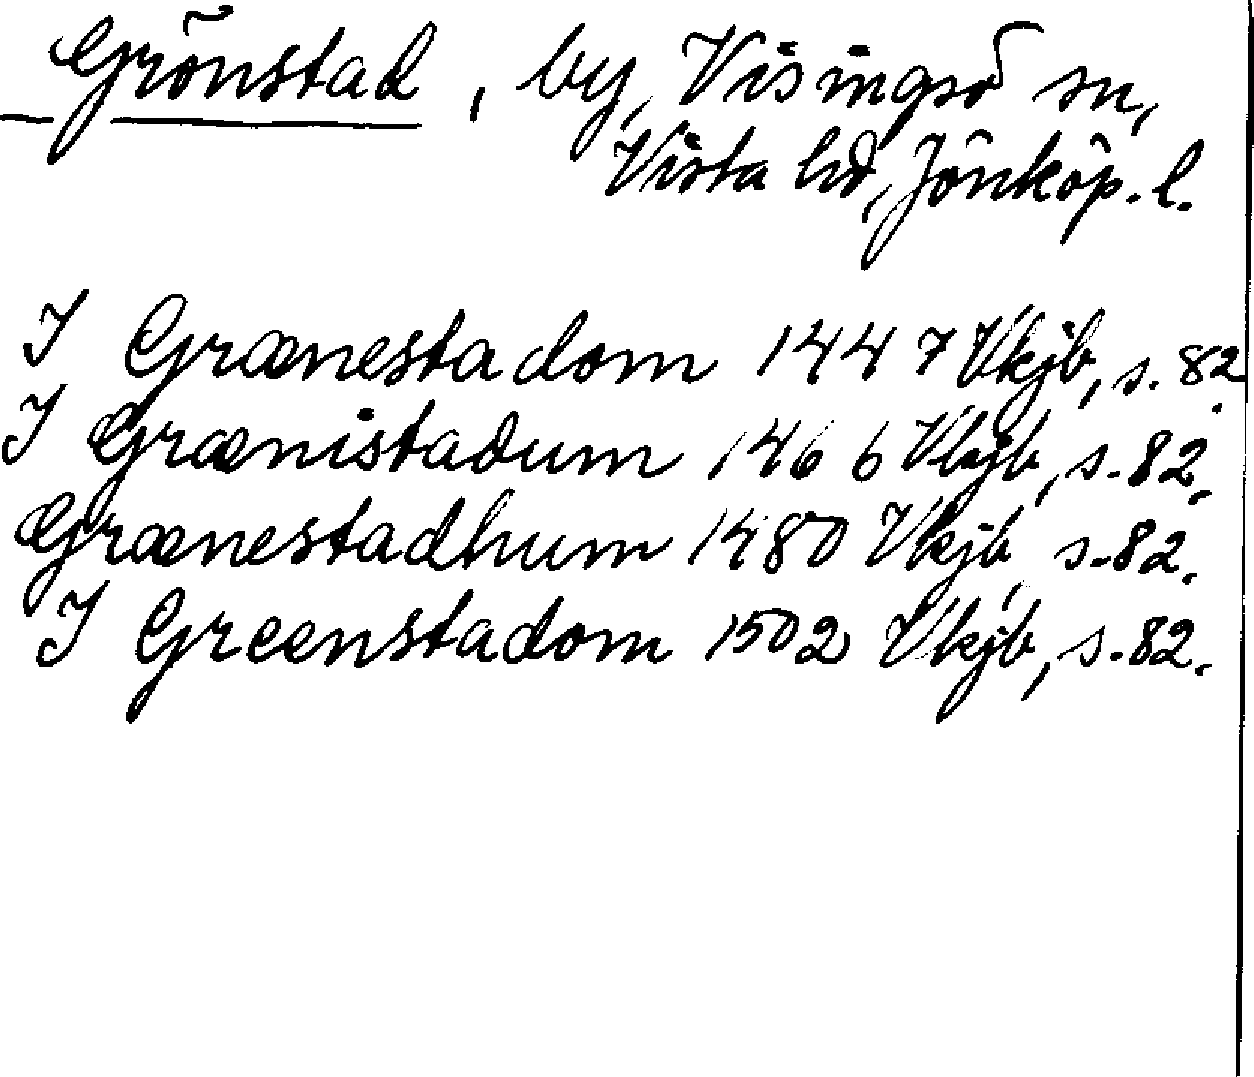 Grönstad, by, Visingsö sn,
Vista hd, Jönköp. l.
I Grænestadom 1447 Vkjb, s. 82.
I Grænistadum 1466 Vkjb, s. 82.
Grænestadhum 1480 Vkjb, s. 82.
I Greenstadom 1502 Vkjb, s. 82.